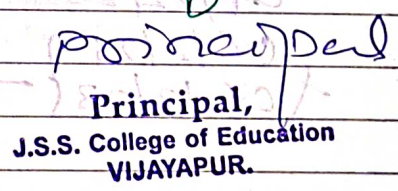 Principal
Principal,
J.S.S. College of Education
VIJAYAPUR.